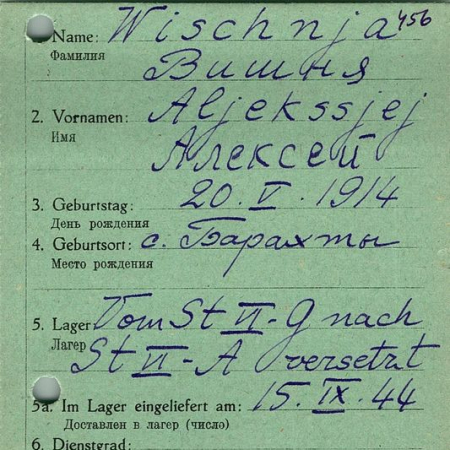 1. Name: Wischnja 456
Фамилия Вишня
2. Vornamen: Aljekssjej
Имя Алексей
3. Geburtstag: 20. V. 1914
День рождения
4. Geburtsort: с. Барахты
Место рождения
5. Lager Vom St VI-G nach
Лагер St VI-A versetzt
5a. Im Lager eingeliefert am: 15. IX. 44
Доставлен в лагер (число)
6. Dienstgrad: